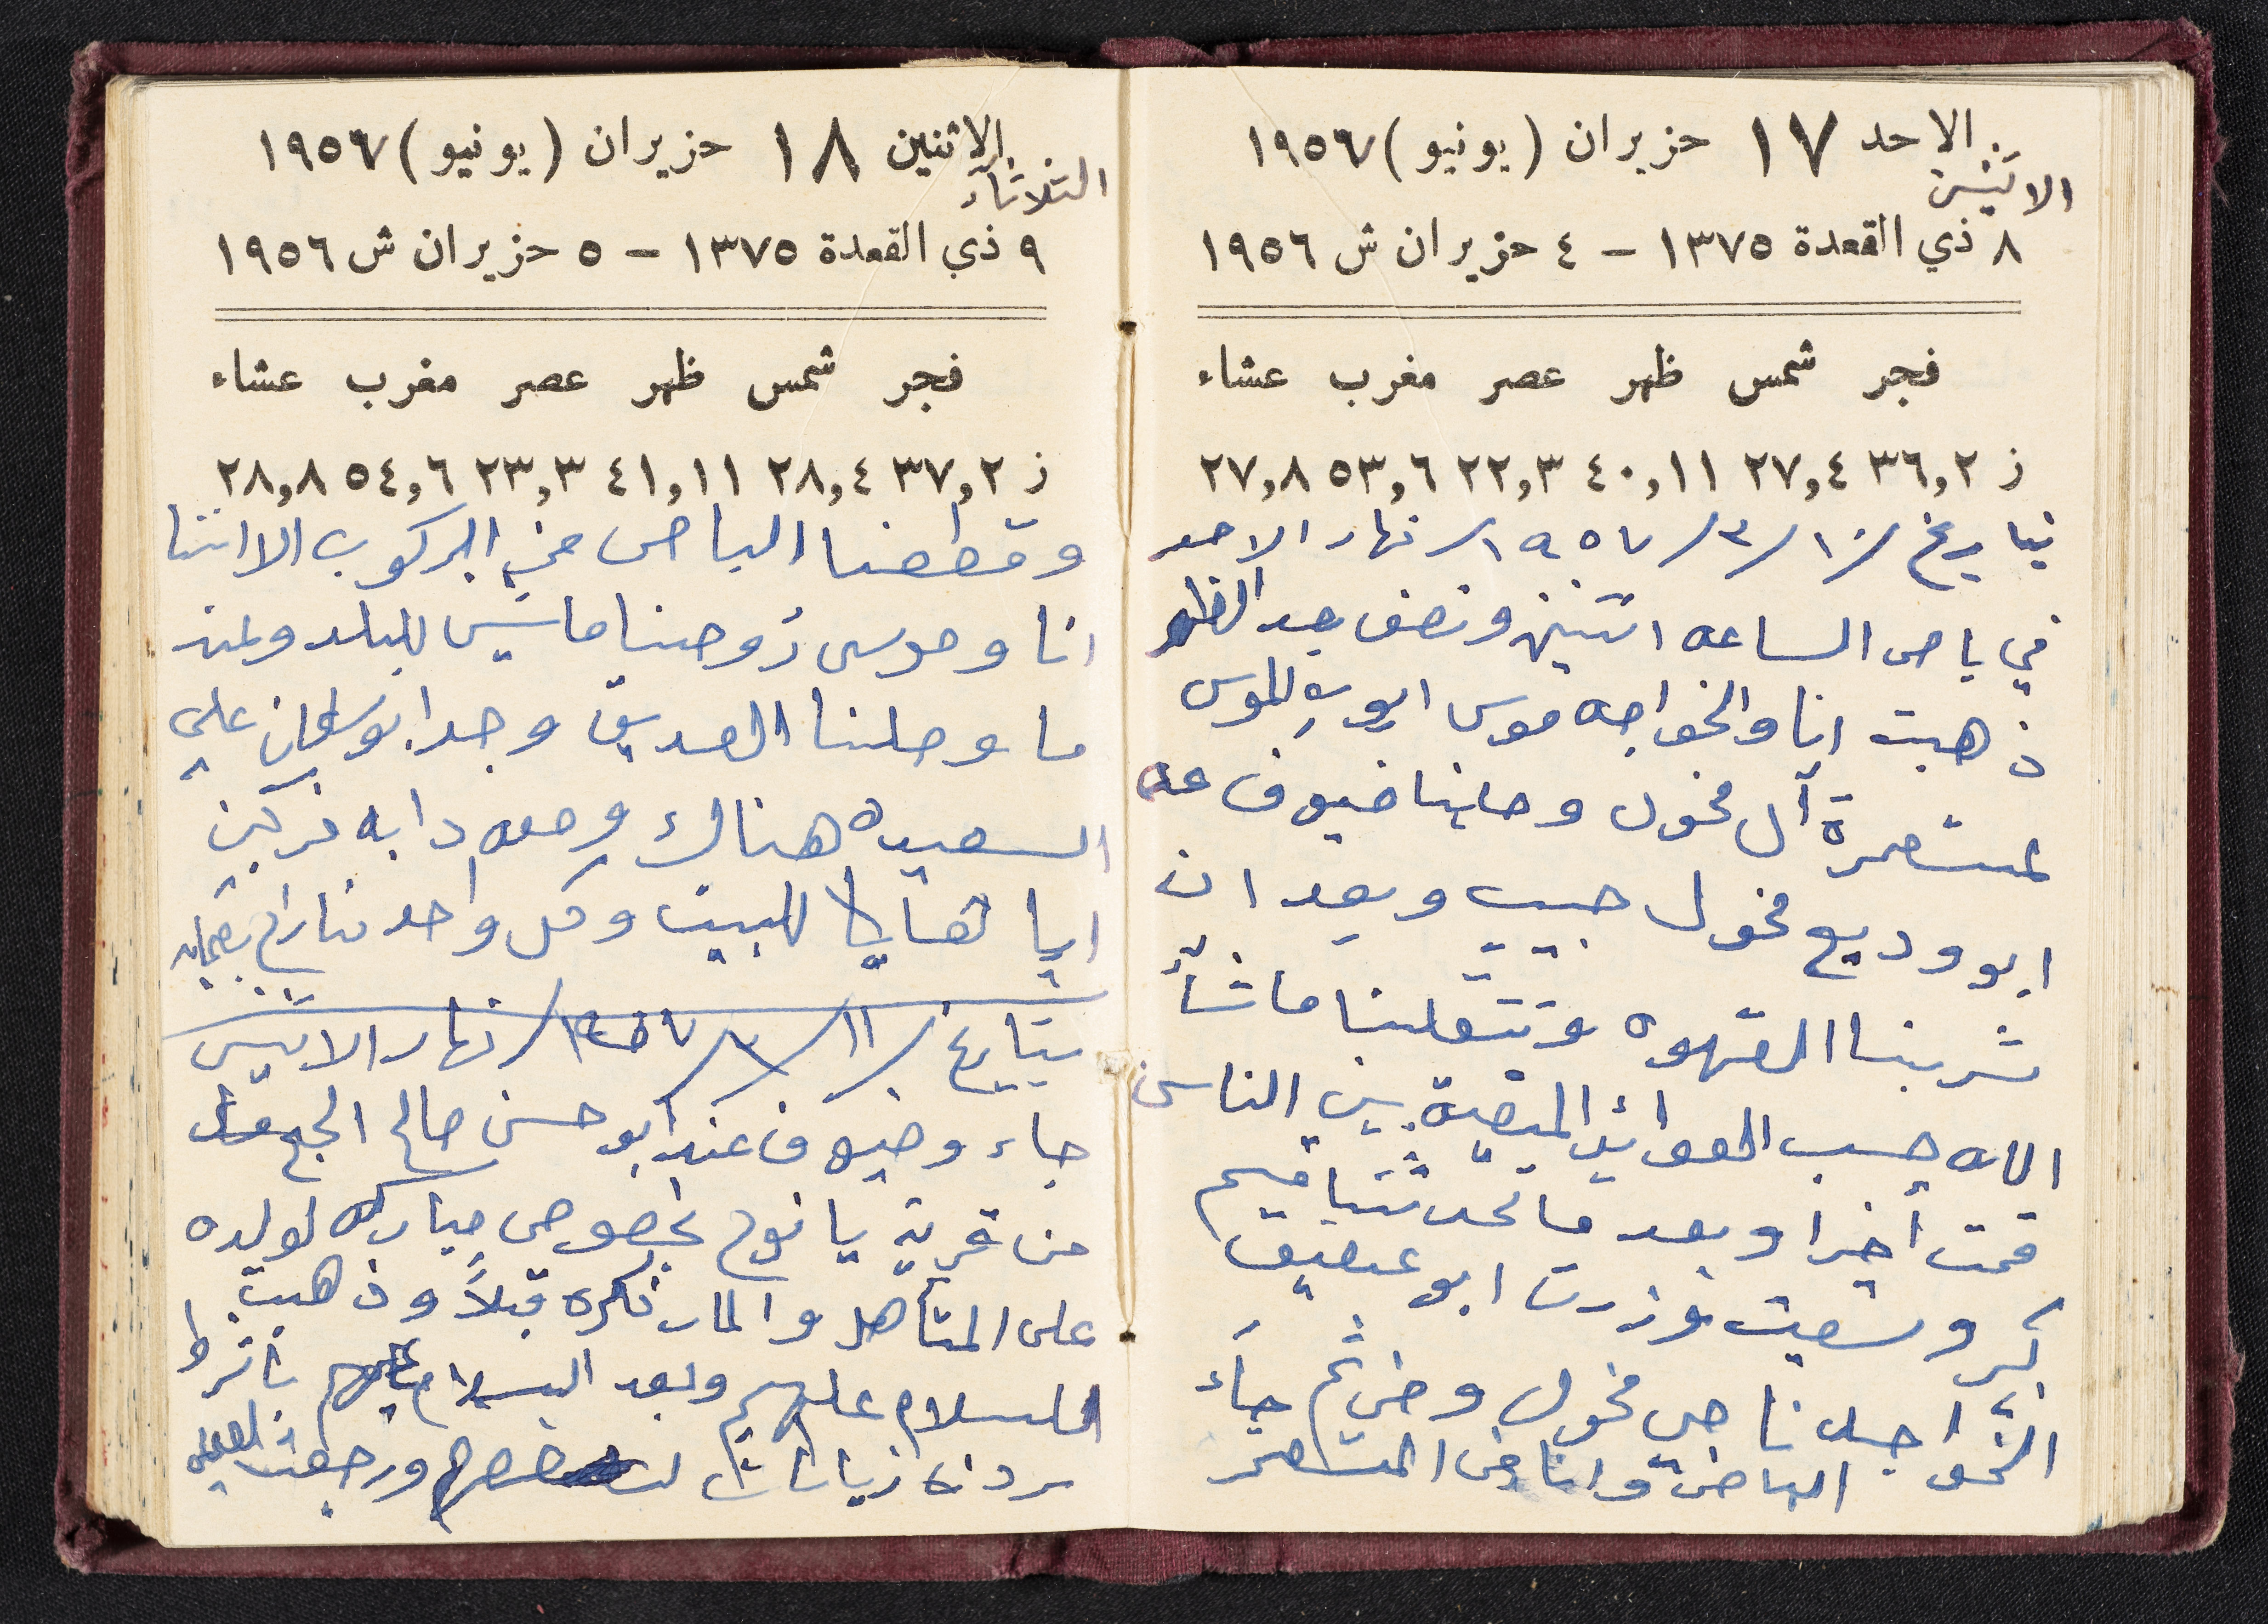 الاحد ١٧ حزيران (يونيو) ١٩٥٧
الاثنين
٨ ذي القعدة ١٣٧٥ - ٤ حزيران ش ١٩٥٦
فجر شمس ظهر عصر مغرب عشاء
ز ٣٦,٢ ٢٧,٤ ٤٠,١١ ٢٢,٣ ٥٣,٦ ٢٧,٨
بتاريخ /١٠/٣/١٩٥٧/ نهار الاحد
في باص الساعه اثنين ونصف بعد الظهر
ذهبت انا والخواجه موسى ابو
لمستعمرة آل مخول وحلينا ضيوف عند
ابو وديع مخول حبيب وبعد ان
شربنا القهوه وتنقلنا ماشأ
الله حسب العوائد المتبعة بين الناس
قمت أخيرا وبعد ما تحدثنا
وسعيت وزرت ابو عفيف
الخواجه ناجي مخول ثم جآء
الباص وانا في المستعمر
الاثنين ١٨ حزيران (يونيو) ١٩٥٧
الثلاثآء
٩ ذي القعدة ١٣٧٥ - ٥ حزيران ش ١٩٥٦
فجر شمس ظهر عصر مغرب عشاء
ز ٣٧,٢ ٢٨,٤ ٤١,١١ ٢٣,٣ ٥٤,٦ ٢٨,٨
وقطعنا الباص من الركوب الا اننا
انا وموسى روحنا ماشيين للبلد وعند
ما وصلنا الصديق وجد ابو سلمان علي
السعيده هناك ومعه دابه فركبن
اياها للبيت وكل واحد منا راح
بتاريخ /١١/٣/١٩٥٧/ نهار الاثنين
جاء وضيوف عند ابو حسن صالح
من قرية يانوح بخصوص مباركه لولده
على المتأهل والمار ذكره قبلاً وذهبت
للسلام عليهم وبعد السلام
ورجعت